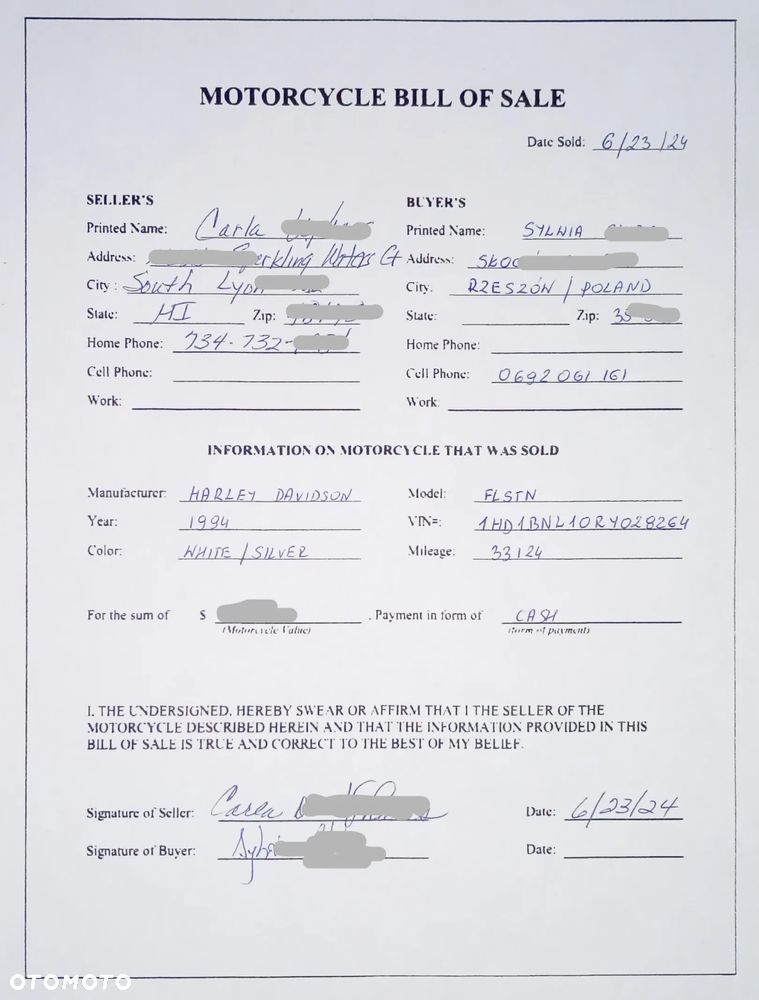 MOTORCYCLE BILL OF SALE
Date Sold: 6/23/24
SELLER'S
Printed Name: Carla
Address: Sparkling Waters Ct
City : South Lyon
State: MI Zip:
Home Phone: 734-732-
Cell Phone:
Work:
BUYER'S
Printed Name: SYLWIA
Address: SKOC
City: RZESZÓN / POLAND
State: Zip: 35
Home Phone:
Cell Phone: 0692 061 161
Work:
INFORMATION ON MOTORCYCLE THAT WAS SOLD
Manufacturer: HARLEY DAVIDSON Model: FLSTN
Year: 1994 VIN#: 1HD1BNL10RY028264
Color: WHITE / SILVER Mileage: 33124
For the sum of $ . Payment in form of CASH
(Motorcycle Value) (form of payment)
I, THE UNDERSIGNED, HEREBY SWEAR OR AFFIRM THAT I THE SELLER OF THE
MOTORCYCLE DESCRIBED HEREIN AND THAT THE INFORMATION PROVIDED IN THIS
BILL OF SALE IS TRUE AND CORRECT TO THE BEST OF MY BELIEF.
Signature of Seller: Carla Date: 6/23/24
Signature of Buyer: Date:
OTOMOTO